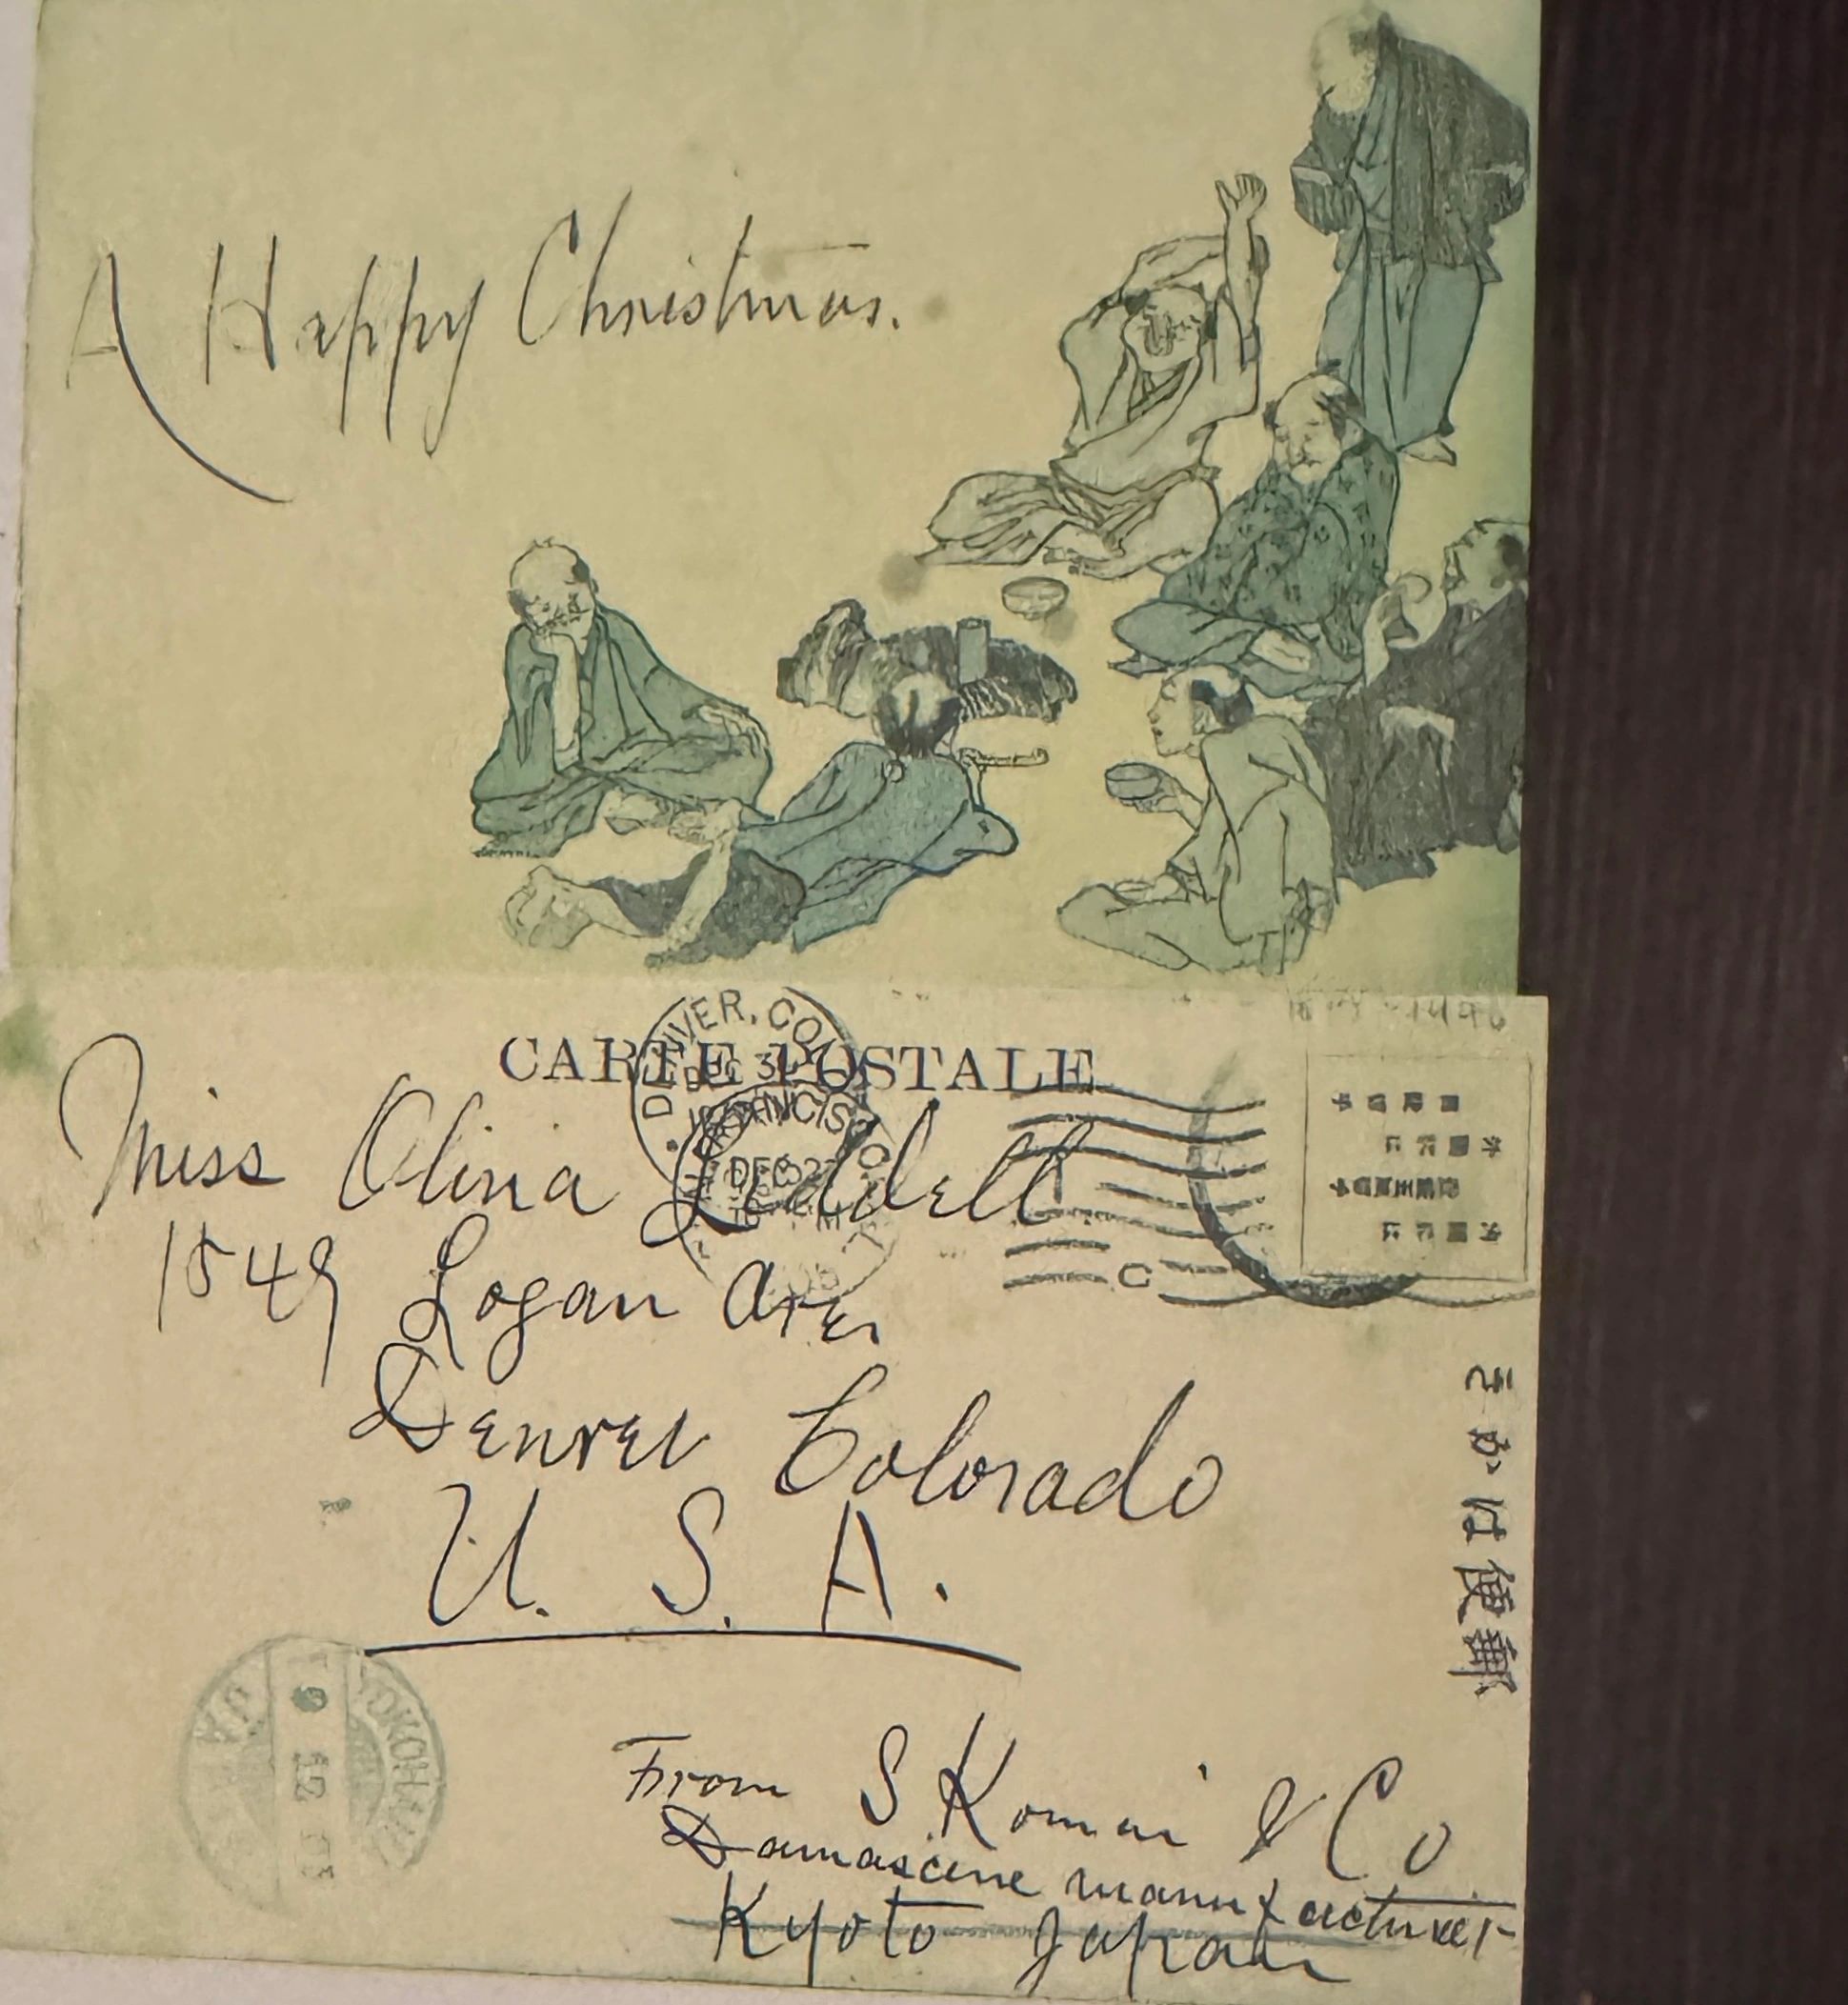 A Happy Christmas.
CARTE POSTALE
DENVER, COLO
DEC 31
FRANCISCO
DEC 27
C
Miss Olivia Liddell
1549 Logan Ave.
Denver Colorado
U. S. A.
きかは便郵
YOKOHAMA
9 12
From S. Komai & Co
Damascene manufacturer
Kyoto Japan